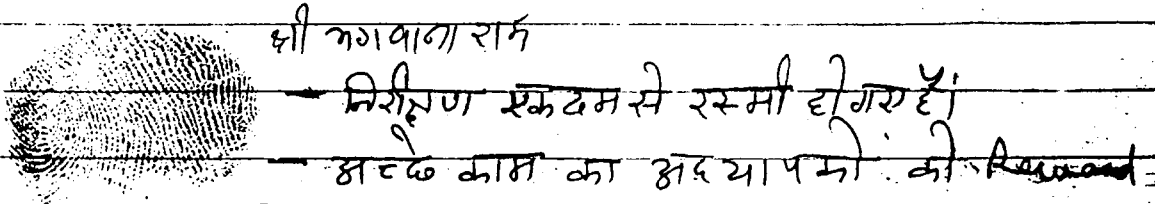 श्री भगवाना राम
- निरीक्षण एकदम से रस्मी हो गए हैं।
- अच्छे काम का अदयापको को Reward